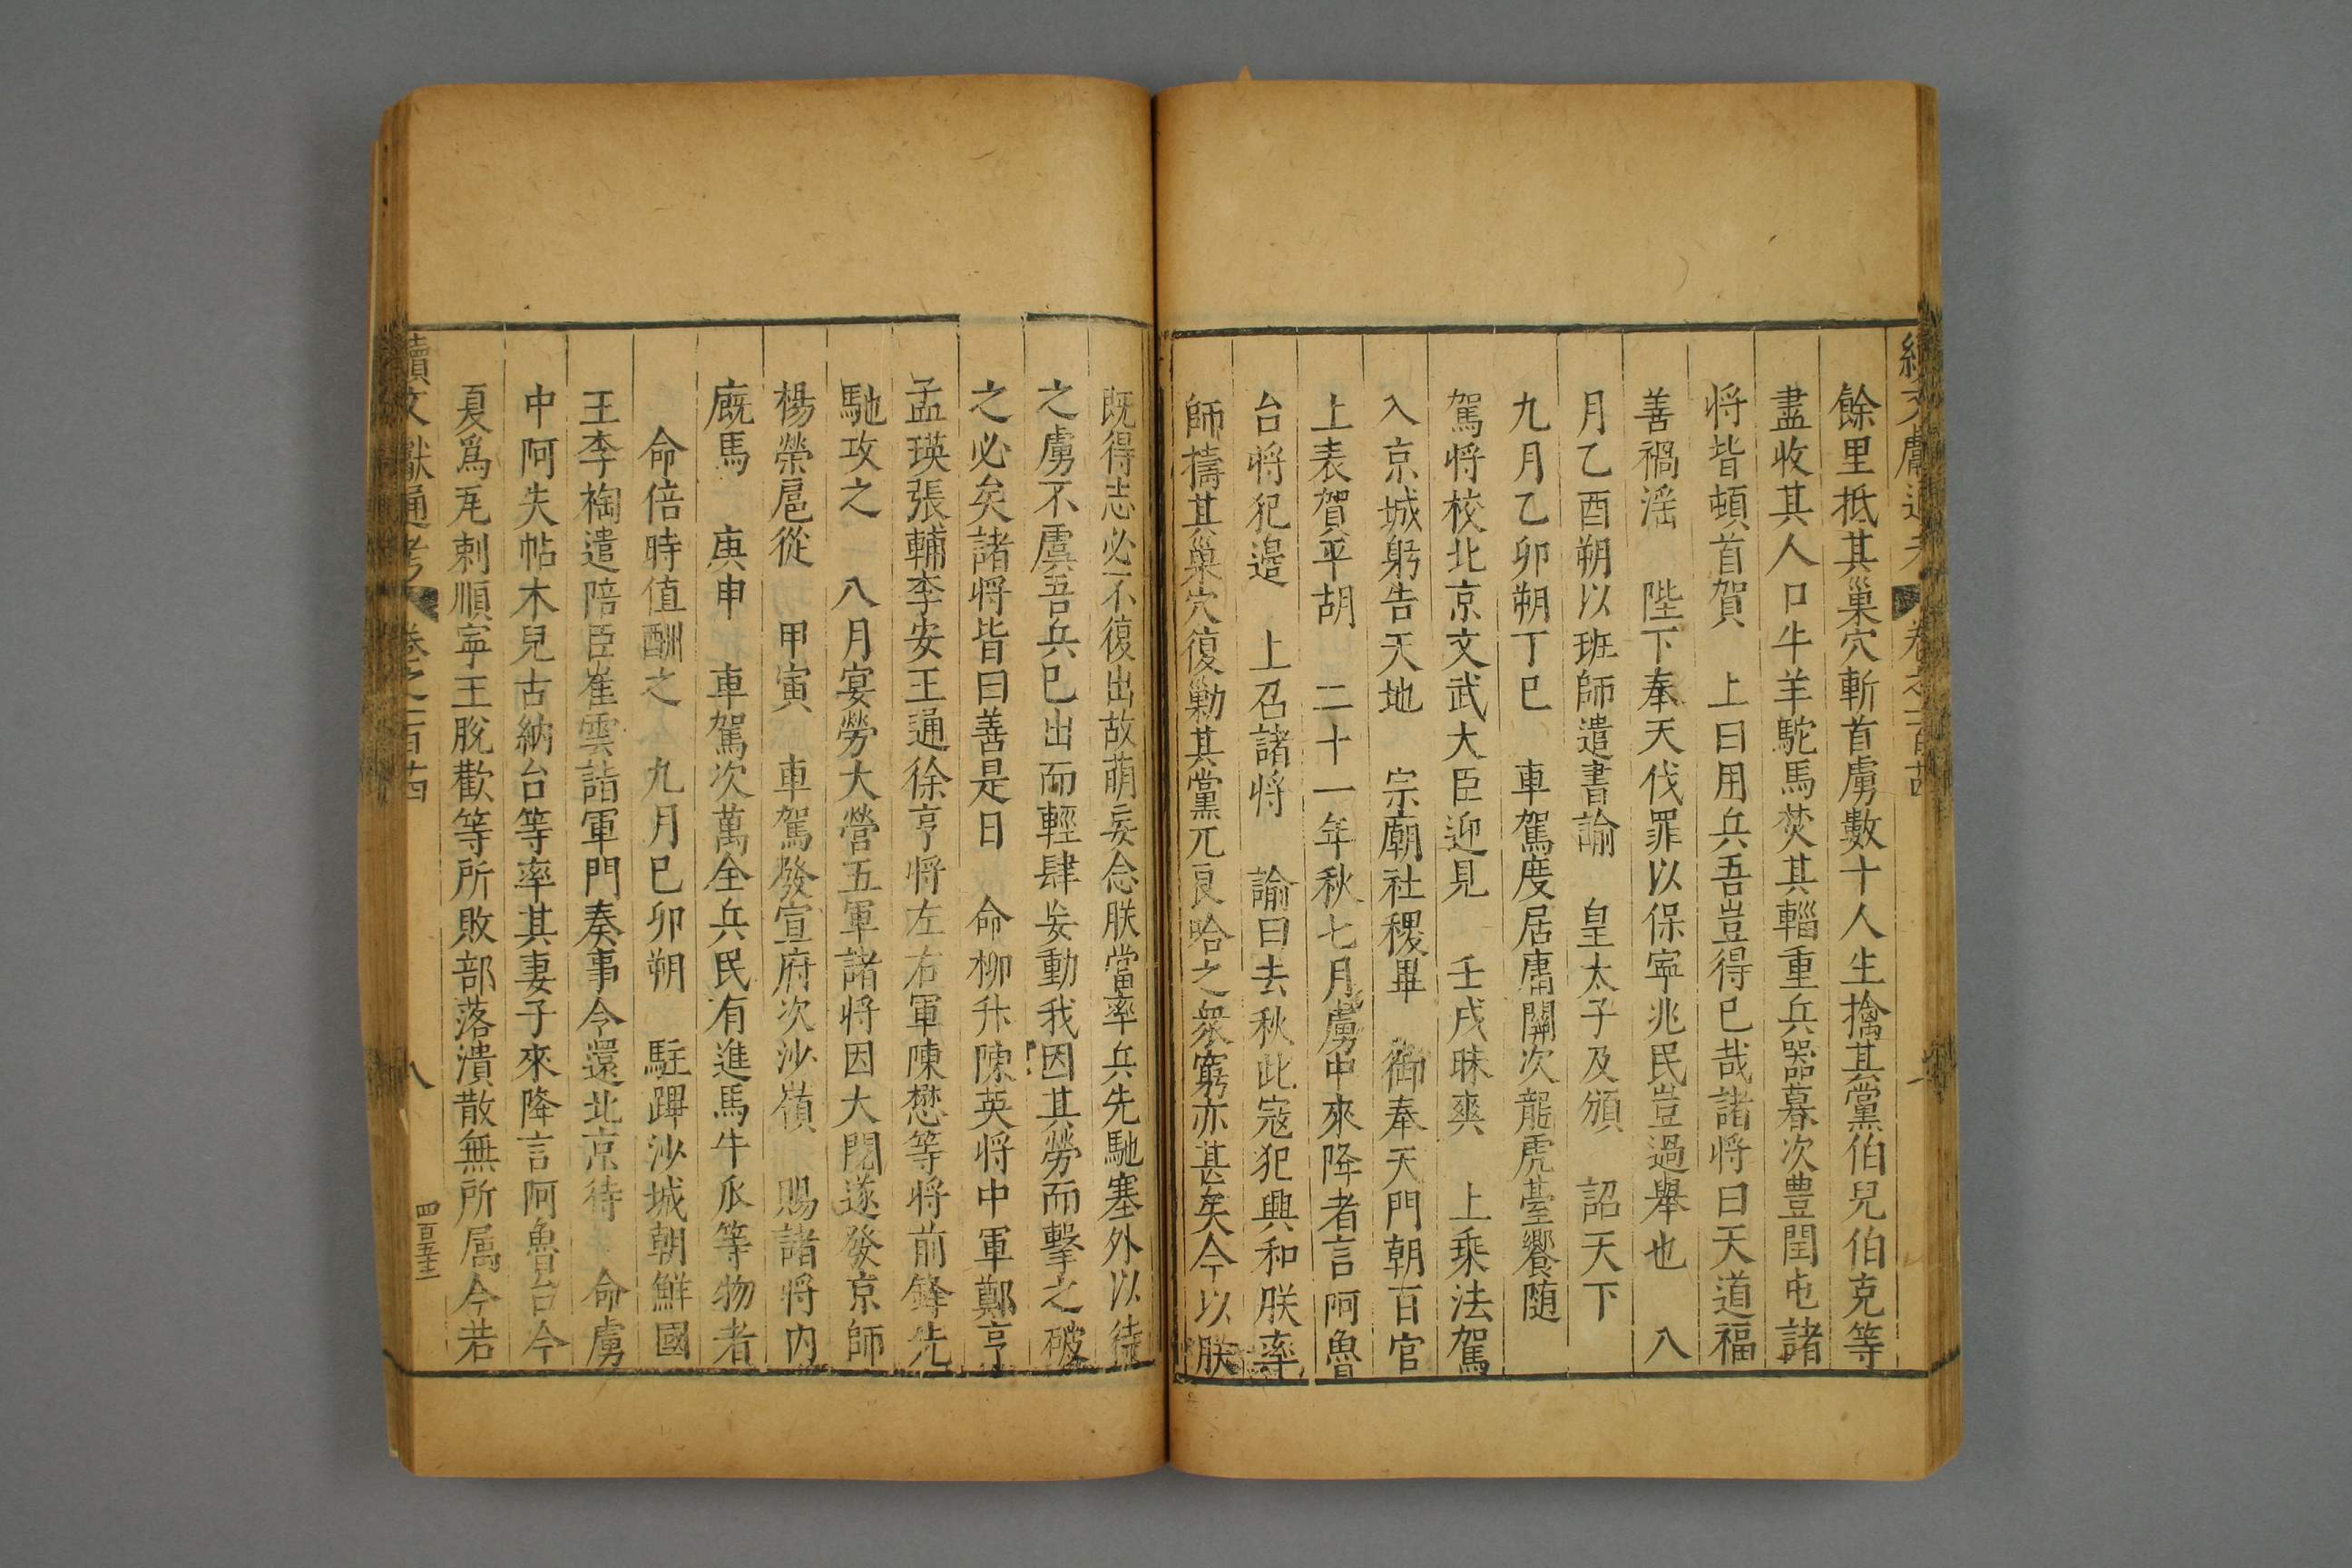 餘里抵其巢穴斬首虜數十人生擒其黨伯兒伯克等
盡收其人口牛羊駝馬焚其輜重兵器暮次豊閏屯諸
将皆頓首賀　上曰用兵吾豈得已哉諸将曰天道福
善禍滛　陛下奉天伐罪以保寧兆民豈過舉也　八
月乙酉朔以班師遣書諭　皇太子及頒　詔天下
九月乙卯朔丁巳　車駕度居庸關次龍虎臺饗随
駕将校北京文武大臣迎見　壬戌昧爽　上乘法駕
入京城躬告天地　宗廟社稷畢　御奉天門朝百官
上表賀平胡　二十一年秋七月虜中來降者言阿魯
台将犯邉　上召諸将　諭曰去秋此寇犯興和朕率
師擣其巢穴復勦其黨兀良哈之衆窮亦甚矣今以朕
既得志必不復出故萌妄念朕當率兵先馳塞外以待
之虜不虞吾兵已出而輕肆妄動我因其勞而擊之破
之必矣諸将皆曰善是日　命柳升陳英将中軍鄭亨
孟瑛張輔李安王通徐亨将左右軍陳懋等将前鋒先
馳攻之　八月宴勞大營五軍諸将因大閱遂發京師
楊榮扈從　甲寅　車駕發宣府次沙嶺　賜諸将内
廐馬　庚申　車駕次萬全兵民有進馬牛瓜等物者
命倍時值酬之　九月己卯朔　駐蹕沙城朝鮮國
王李裪遣陪臣崔雲詣軍門奏事令還北京待　命虜
中阿失帖木兒古納台等率其妻子來降言阿魯台今
夏爲瓦剌順寧王脫歡等所敗部落潰散無所属今若
續文獻通考　卷之二百卌四　八